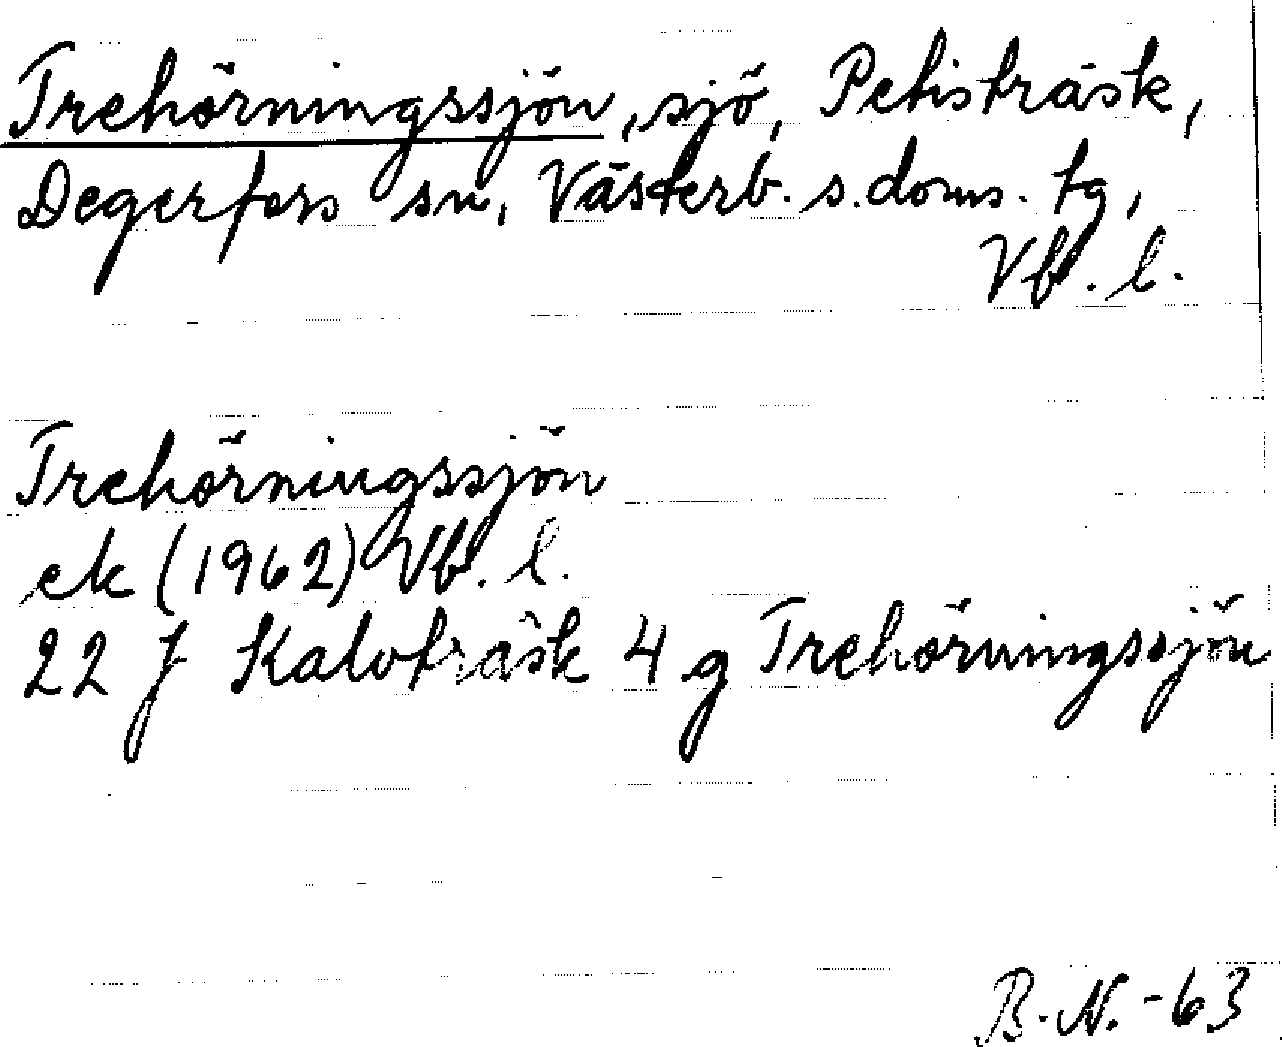 Trehörningssjön, sjö, Petisträsk,
Degerfors sn, Västerb. s. doms. tg,
Vb. l.
Trehörningssjön
ek (1962) Vb. l.
22 J Kalvträsk 4 g Trehörningssjön
B. N. -63